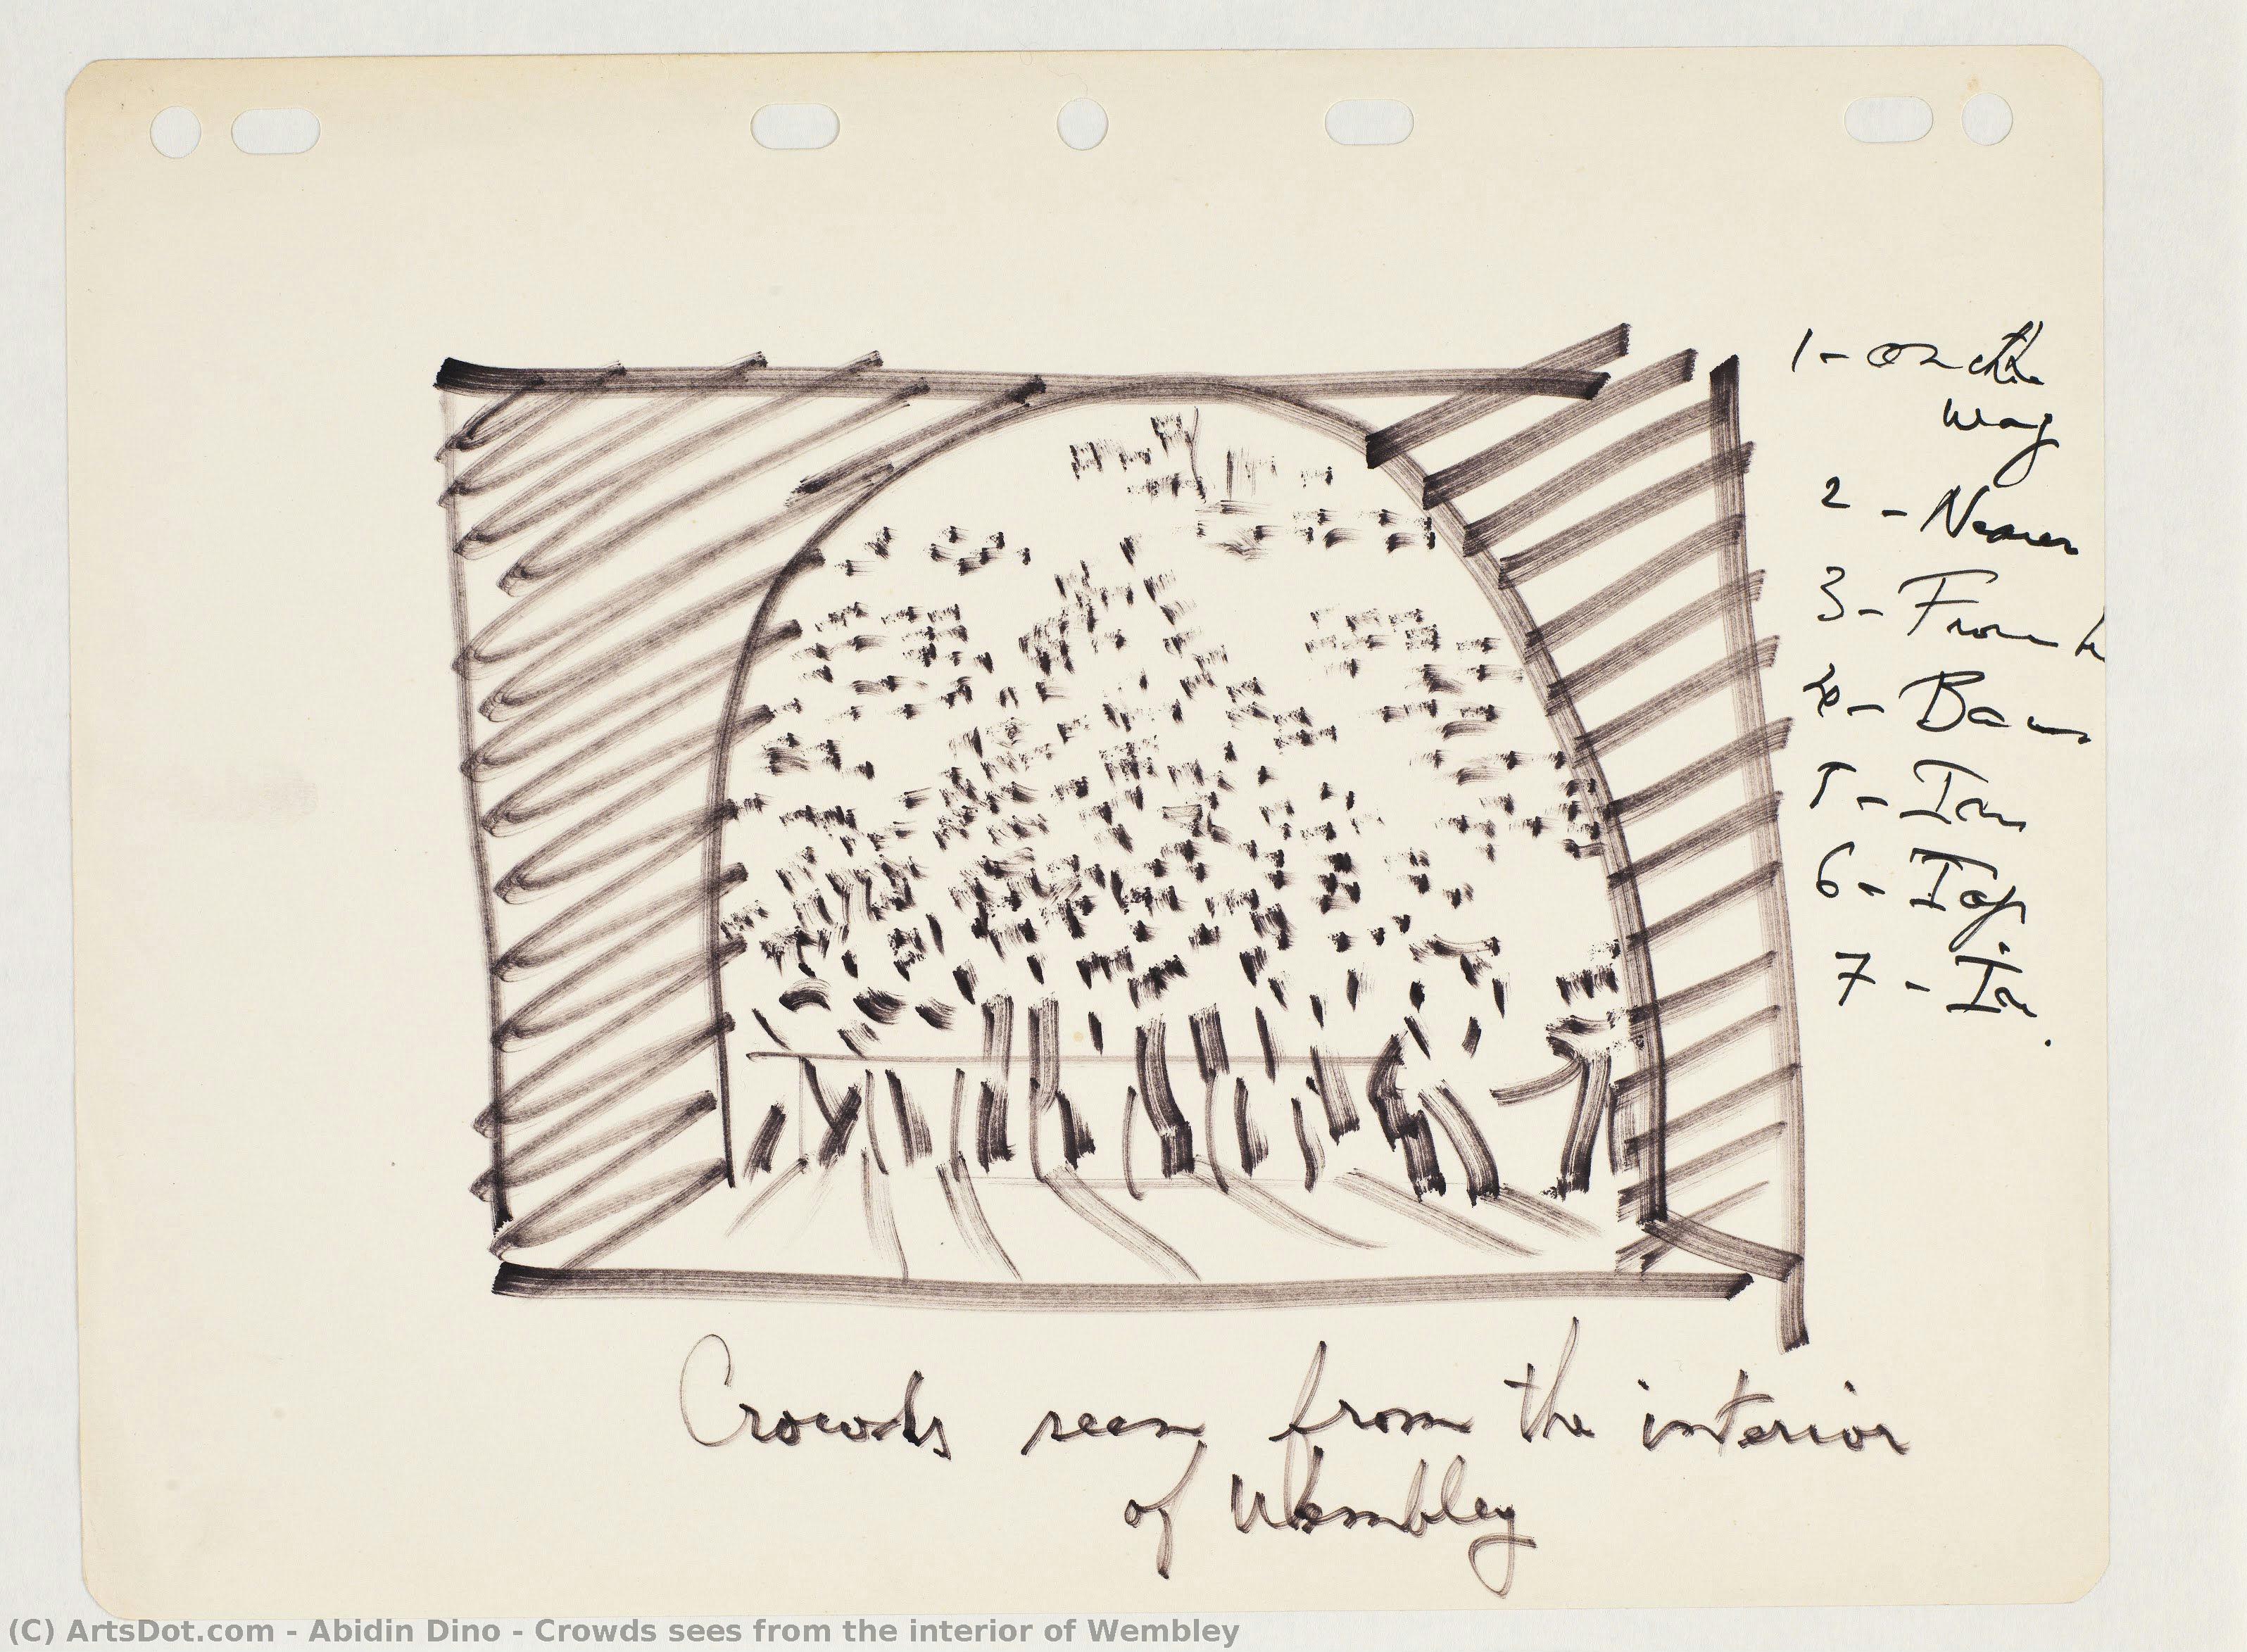 1 - on the
way
2 - Nearer
3 - From
5 - In
6 - Top
7 - In.
Crowds seen from the interior
of Wembley
(C) ArtsDot.com - Abidin Dino - Crowds sees from the interior of Wembley